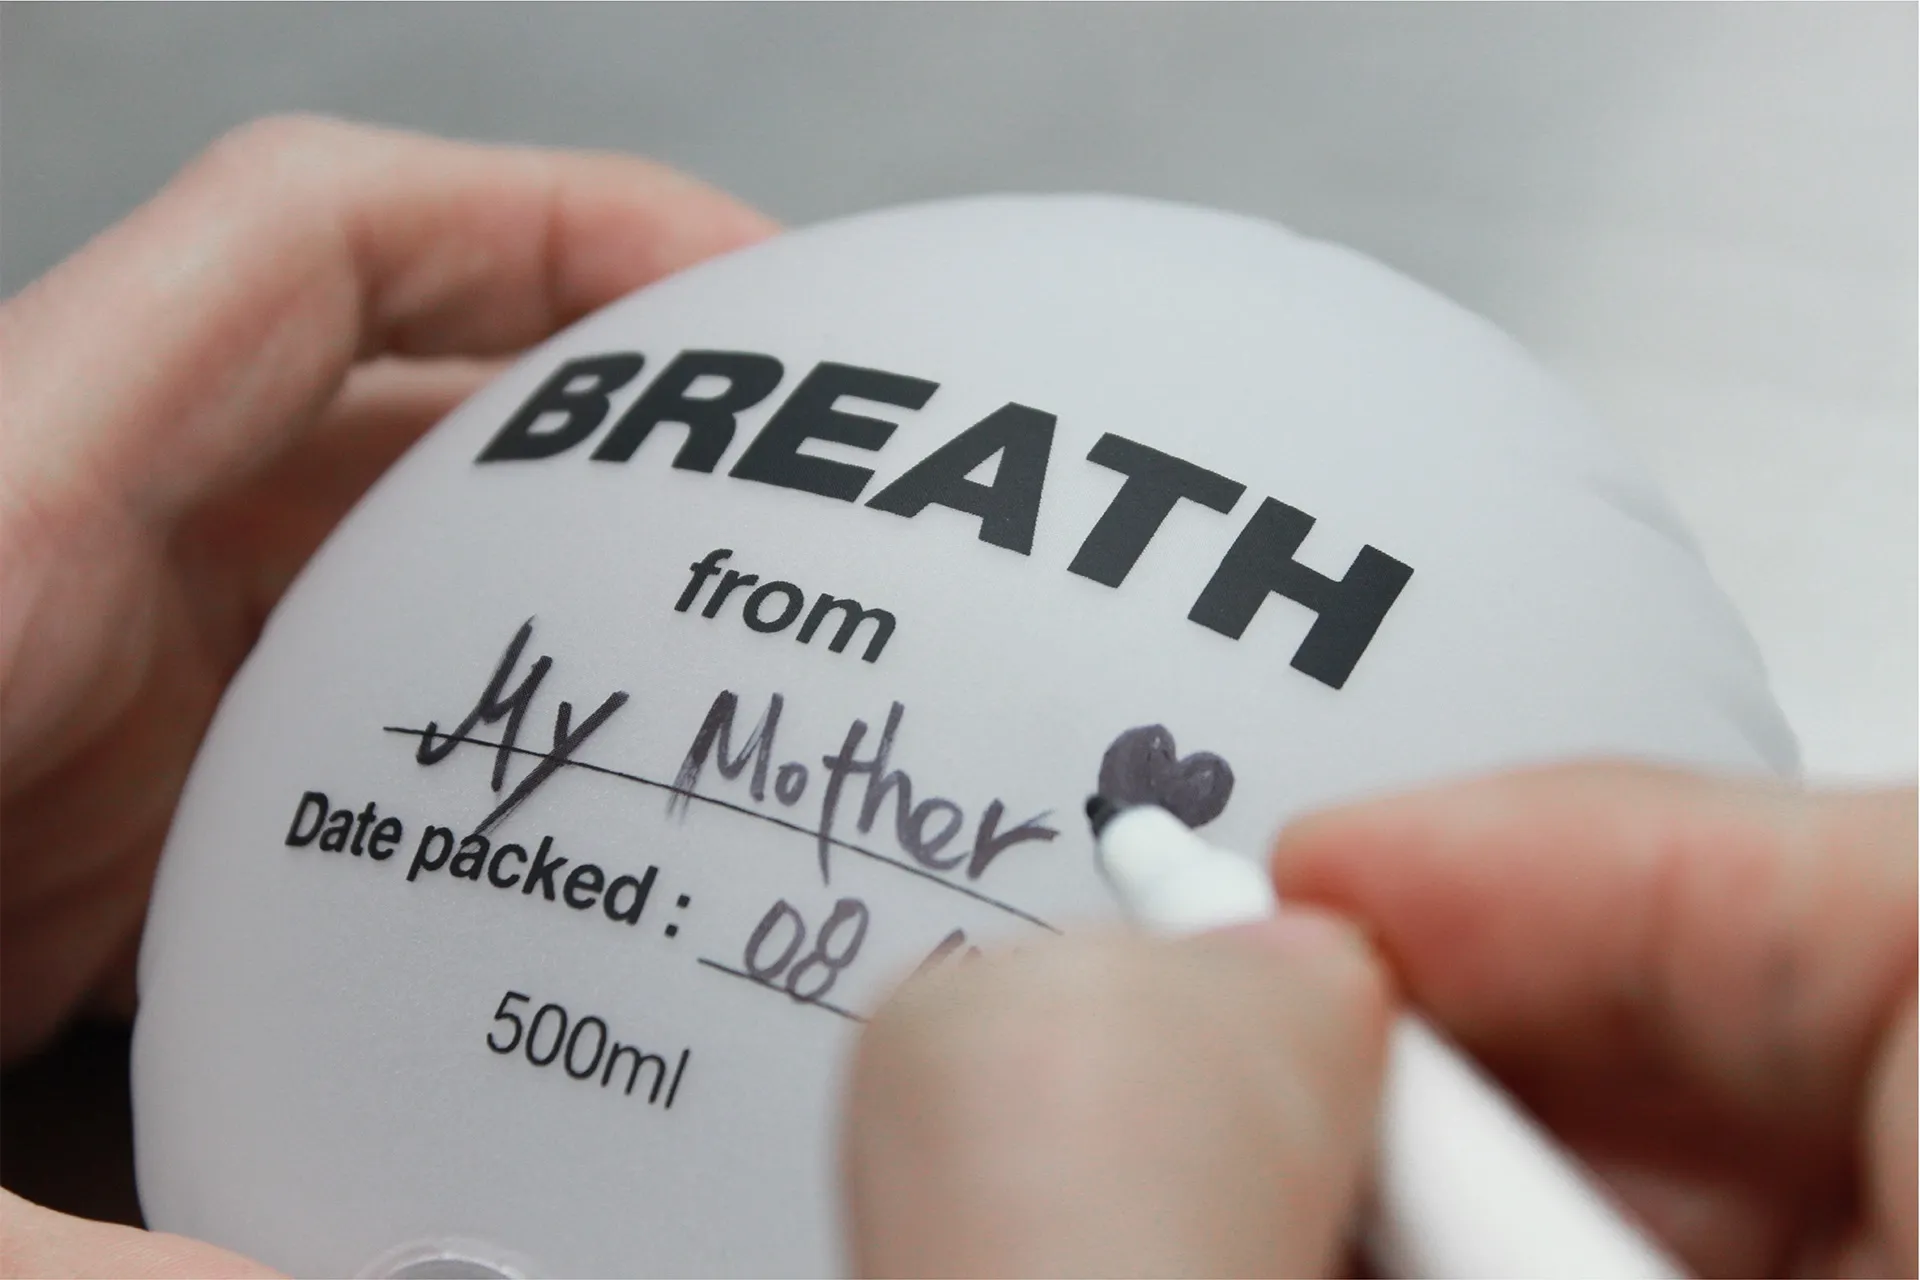 BREATH
from
My Mother
Date packed : 08
500ml